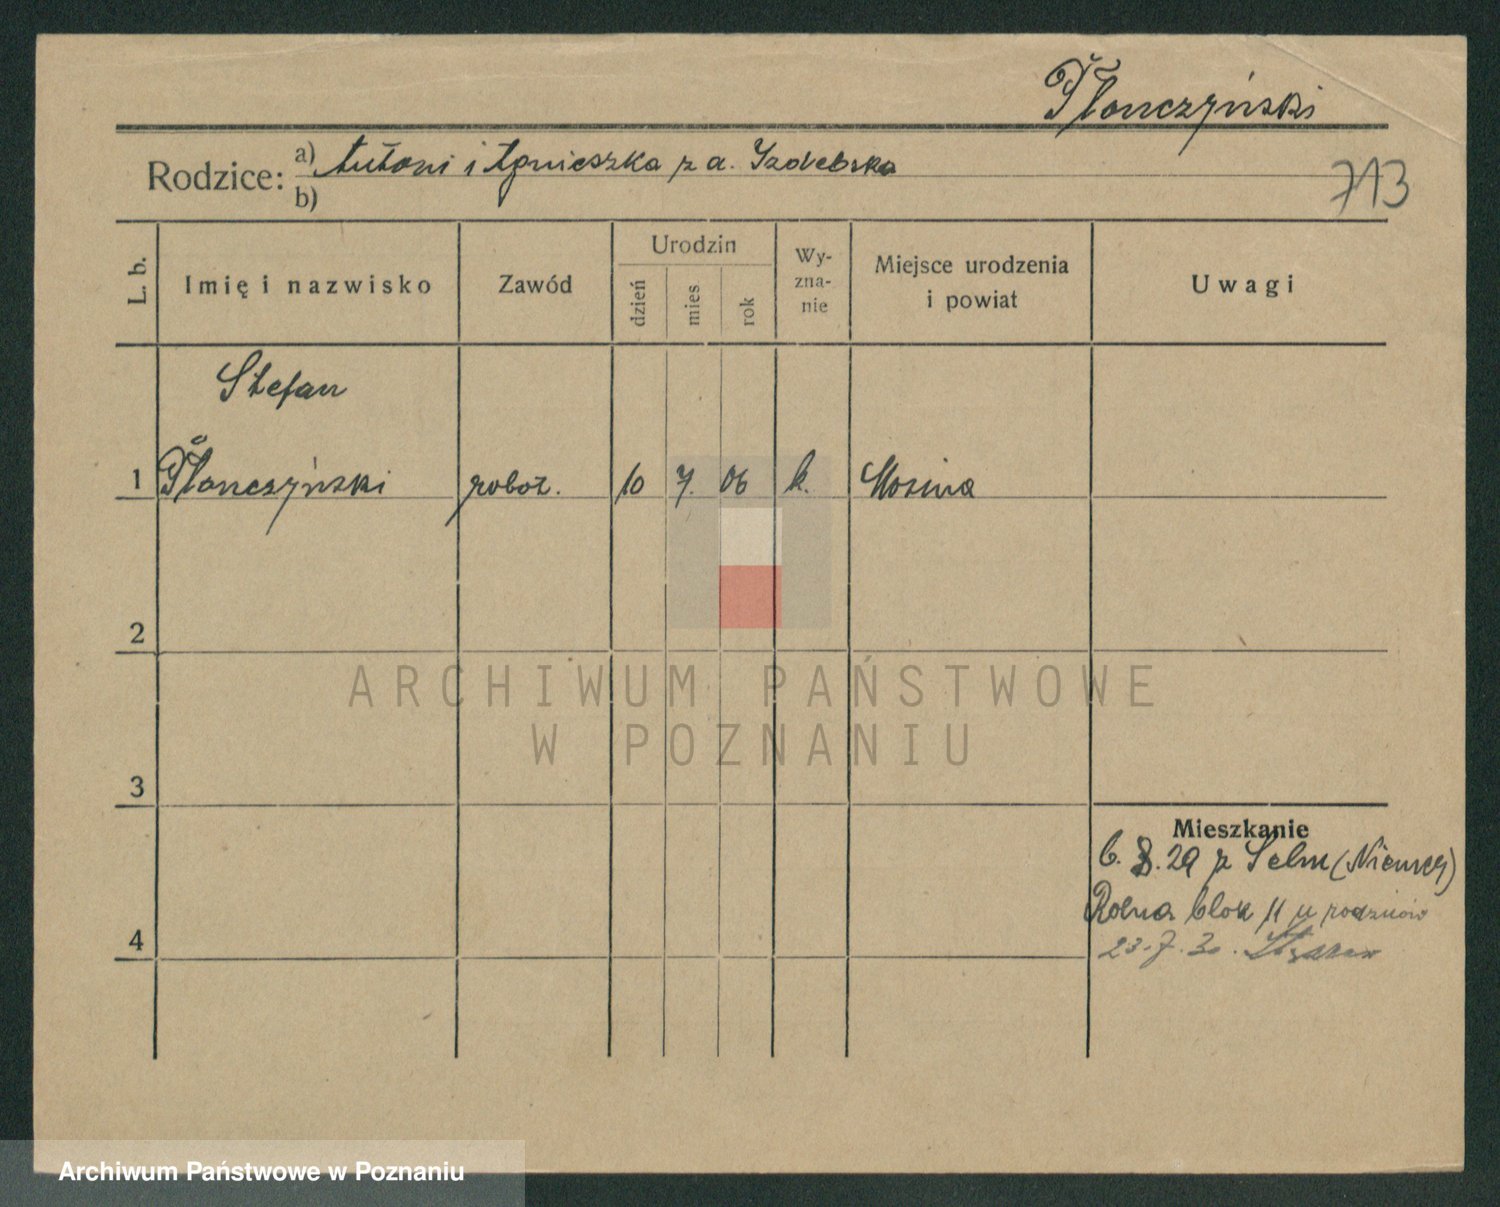 Płonczyński
Rodzice: a) Antoni i Agnieszka z d. Izdebska
b)
713
L. b.
Imię i nazwisko
Zawód
Urodzin
dzień
mies
rok
Wy-
zna-
nie
Miejsce urodzenia
i powiat
Uwagi
Stefan
1 Płonczyński robot. 10 7. 06 k. Mosina
2
ARCHIWUM PAŃSTWOWE
W POZNANIU
3
Mieszkanie
6. 8. 29 z Selm (Niemcy)
Rolna blok 11 u rodziców
4
23.7.30.
Archiwum Państwowe w Poznaniu